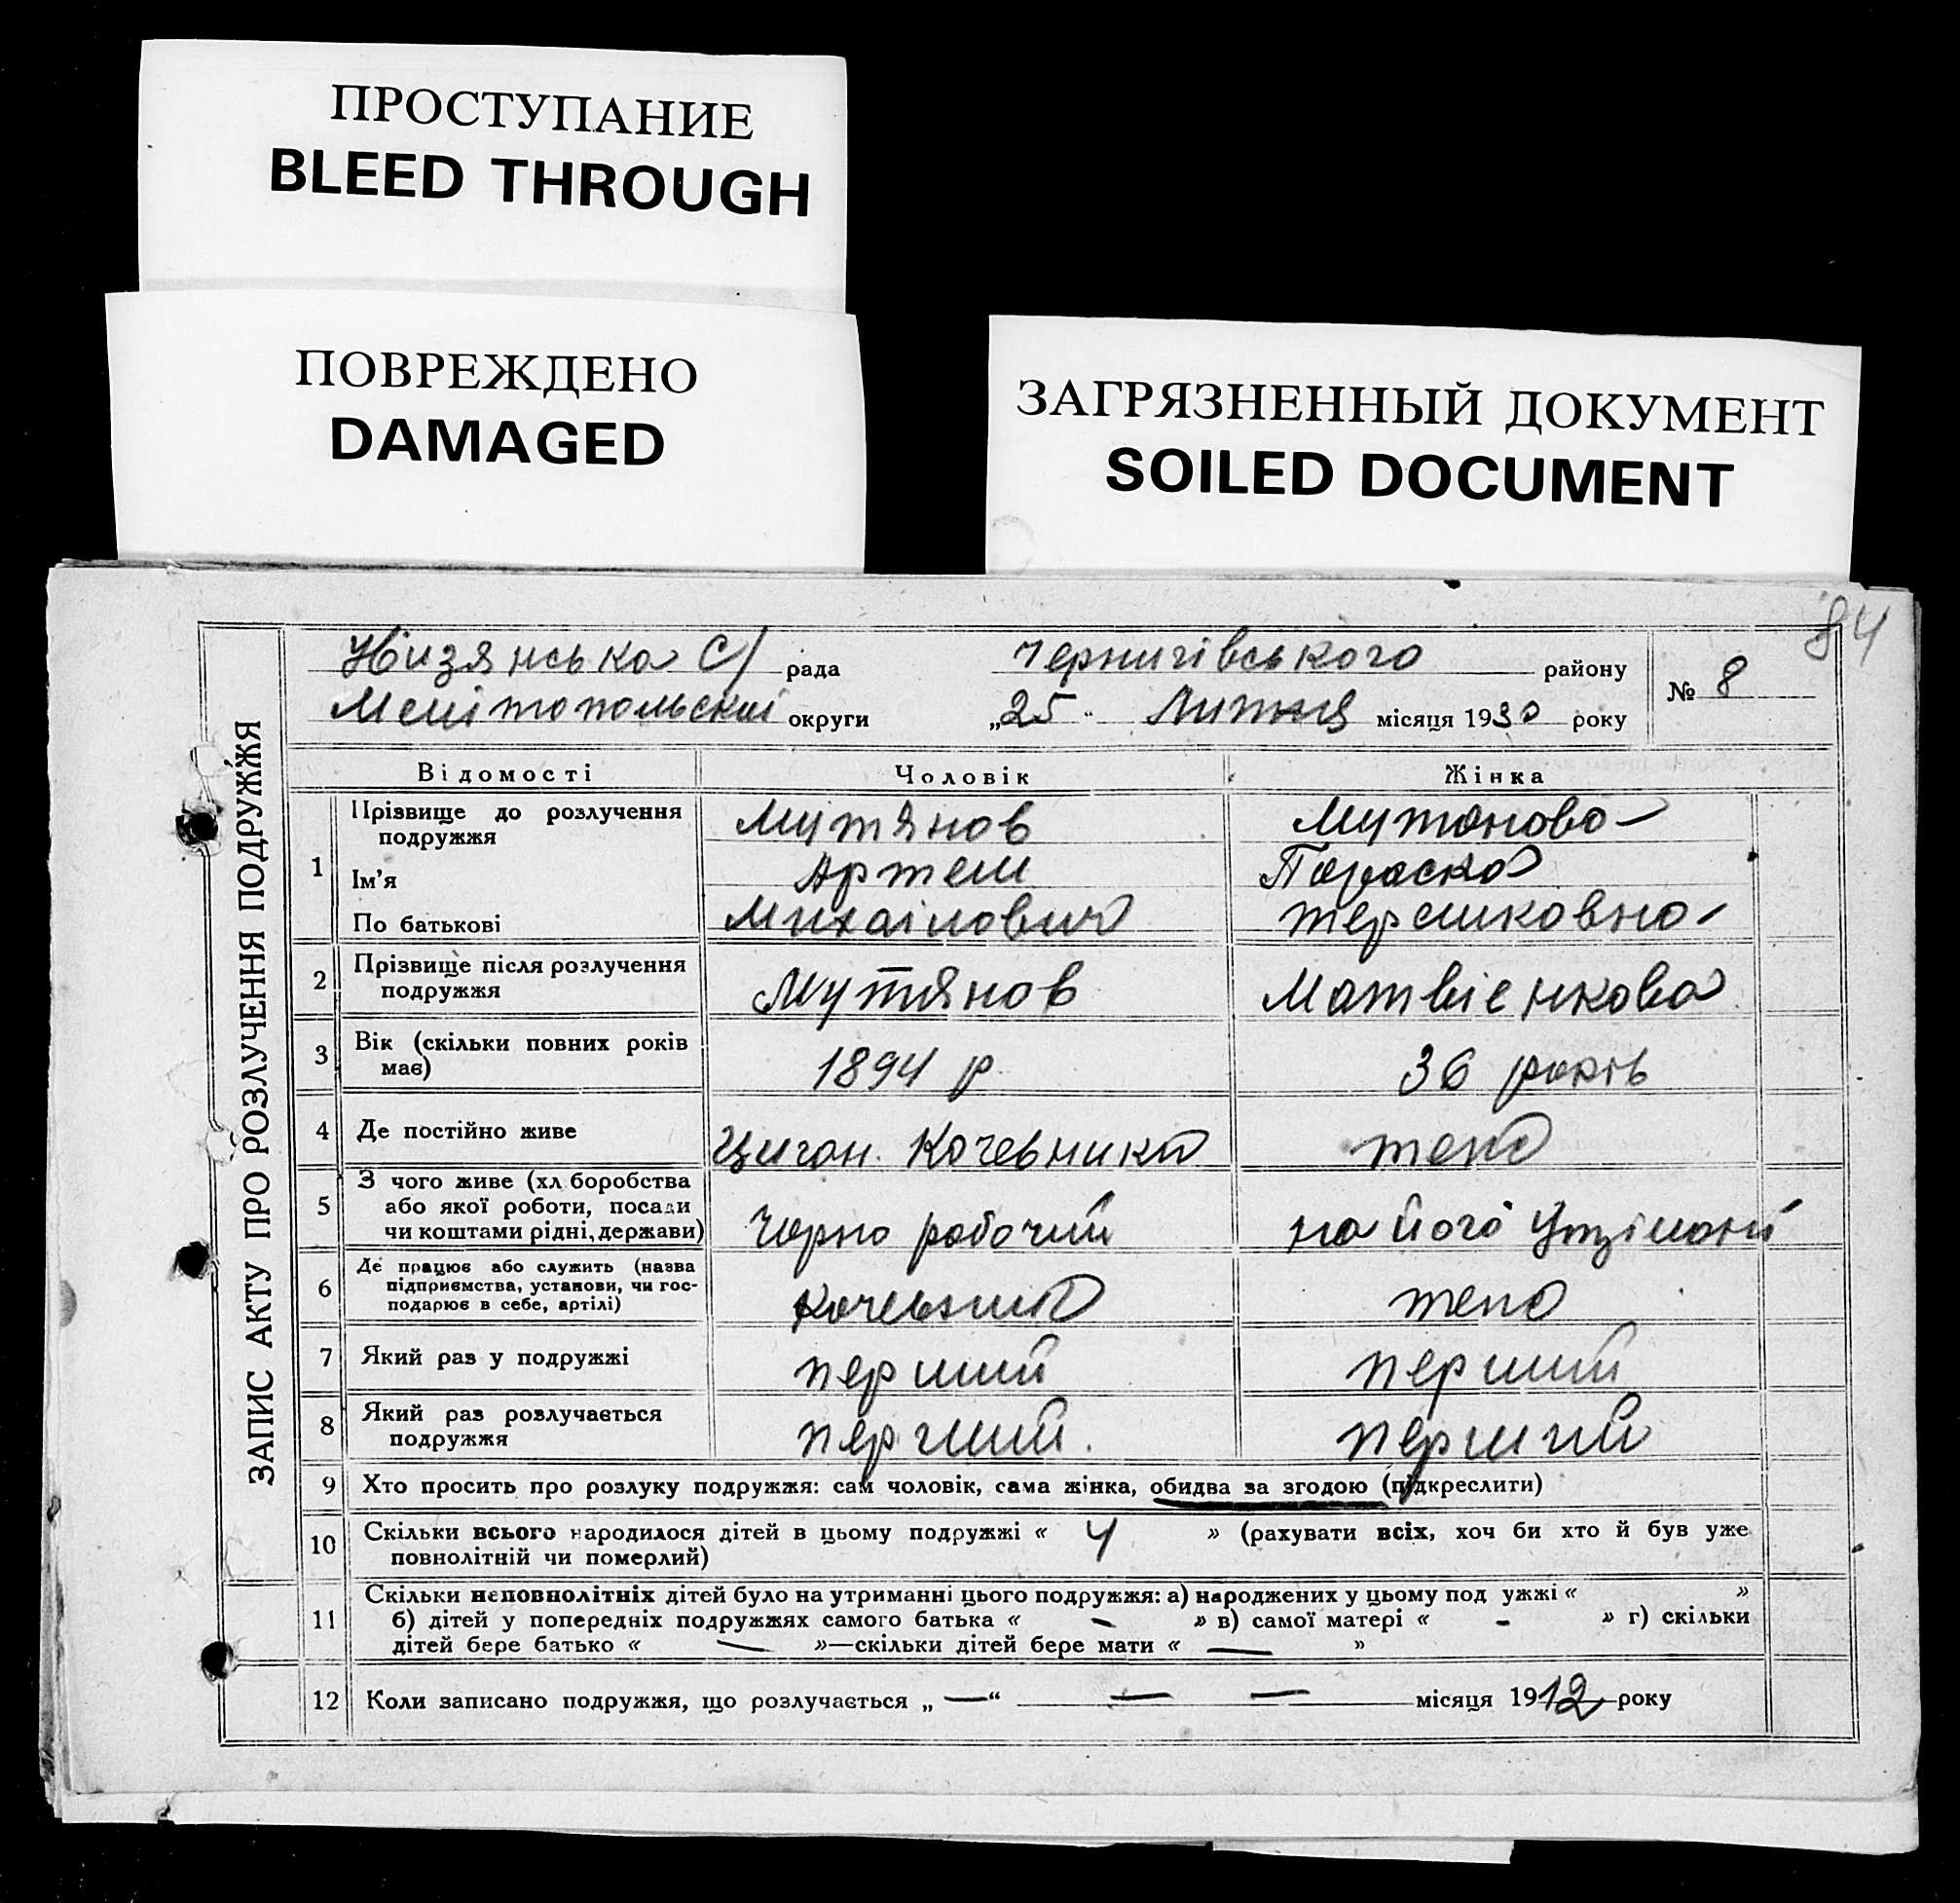 ПРОСТУПАНИЕ
BLEED THROUGH
ПОВРЕЖДЕНО
DAMAGED
ЗАГРЯЗНЕННЫЙ ДОКУМЕНТ
SOILED DOCUMENT
84
ЗАПИС АКТУ ПРО РОЗЛУЧЕННЯ ПОДРУЖЖЯ
Низянська С/ рада Чернигівського району № 8
округи „25“ Лютня місяця 1930 року
Відомості Чоловік Жінка
1 Прізвище до розлучення подружжя Мутянов Мутонова
Ім'я Артем Параска
По батькові Михаілович
2 Прізвище після розлучення подружжя Мутянов Матвієнкова
3 Вік (скільки повних років має) 1894 р 36 років
4 Де постійно живе Циган. Кочевники тепо
5 З чого живе (хліборобства або якої роботи, посади чи коштами рідні, держави) Чорно робочий на його
6 Де працює або служить (назва підприємства, установи, чи господарює в себе, артілі) Кочевник тепо
7 Який раз у подружжі перший перший
8 Який раз розлучається подружжя перший. перший
9 Хто просить про розлуку подружжя: сам чоловік, сама жінка, обидва за згодою (підкреслити)
10 Скільки всього народилося дітей в цьому подружжі « 4 » (рахувати всіх, хоч би хто й був уже
повнолітній чи померлий)
11 Скільки неповнолітніх дітей було на утриманні цього подружжя: а) народжених у цьому под ужжі « »
б) дітей у попередніх подружжях самого батька « - » в) самої матері « - » г) скільки
дітей бере батько « — »—скільки дітей бере мати « — »
12 Коли записано подружжя, що розлучається „ — “ — — місяця 1912 року